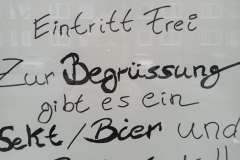 Eintritt Frei
Zur Begrüssung
gibt es ein
Sekt/Bier und